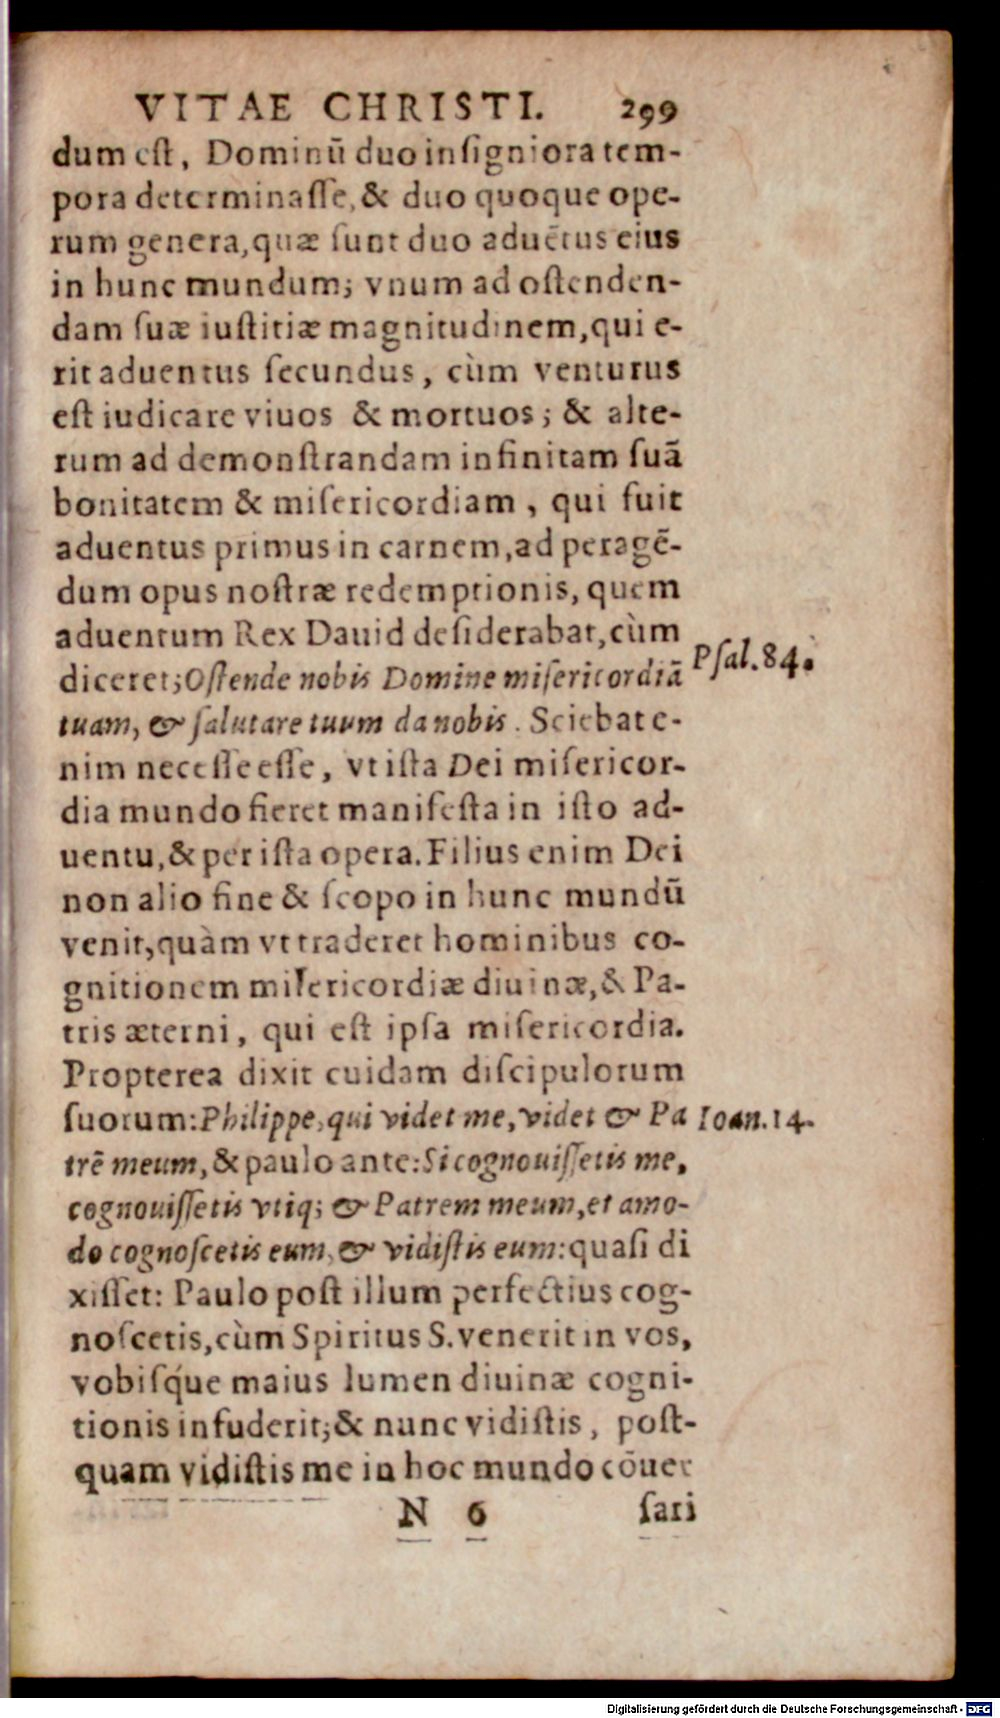 VITAE CHRISTI. 299
dum eſt, Dominū duo inſigniora tem-
pora determinaſſe, & duo quoque ope-
rum genera, quæ ſunt duo aduētus eius
in hunc mundum; vnum ad oſtenden-
dam ſuæ iuſtitiæ magnitudinem, qui e-
rit aduentus ſecundus, cùm venturus
eſt iudicare viuos & mortuos; & alte-
rum ad demonſtrandam infinitam ſuā
bonitatem & miſericordiam, qui fuit
aduentus primus in carnem, ad peragē-
dum opus noſtræ redemptionis, quem
aduentum Rex Dauid deſiderabat, cùm
diceret; Oſtende nobis Domine miſericordiā Pſal. 84.
tuam, & ſalutare tuum da nobis. Sciebat e-
nim neceſſe eſſe, vt iſta Dei miſericor-
dia mundo fieret manifeſta in iſto ad-
uentu, & per iſta opera. Filius enim Dei
non alio fine & ſcopo in hunc mundū
venit, quàm vt traderet hominibus co-
gnitionem miſericordiæ diuinæ, & Pa-
tris æterni, qui eſt ipſa miſericordia.
Propterea dixit cuidam diſcipulorum
ſuorum: Philippe, qui videt me, videt & Pa Ioan. 14.
trē meum, & paulo ante: Si cognouiſſetis me,
cognouiſſetis vtiq; & Patrem meum, et amo-
do cognoſcetis eum, & vidiſtis eum: quaſi di
xiſſet: Paulo poſt illum perfectius cog-
noſcetis, cùm Spiritus S. venerit in vos,
vobiſq́ue maius lumen diuinæ cogni-
tionis infuderit; & nunc vidiſtis, poſt-
quam vidiſtis me in hoc mundo cōuer
N 6 ſari
Digitalisierung gefördert durch die Deutsche Forschungsgemeinschaft - DFG